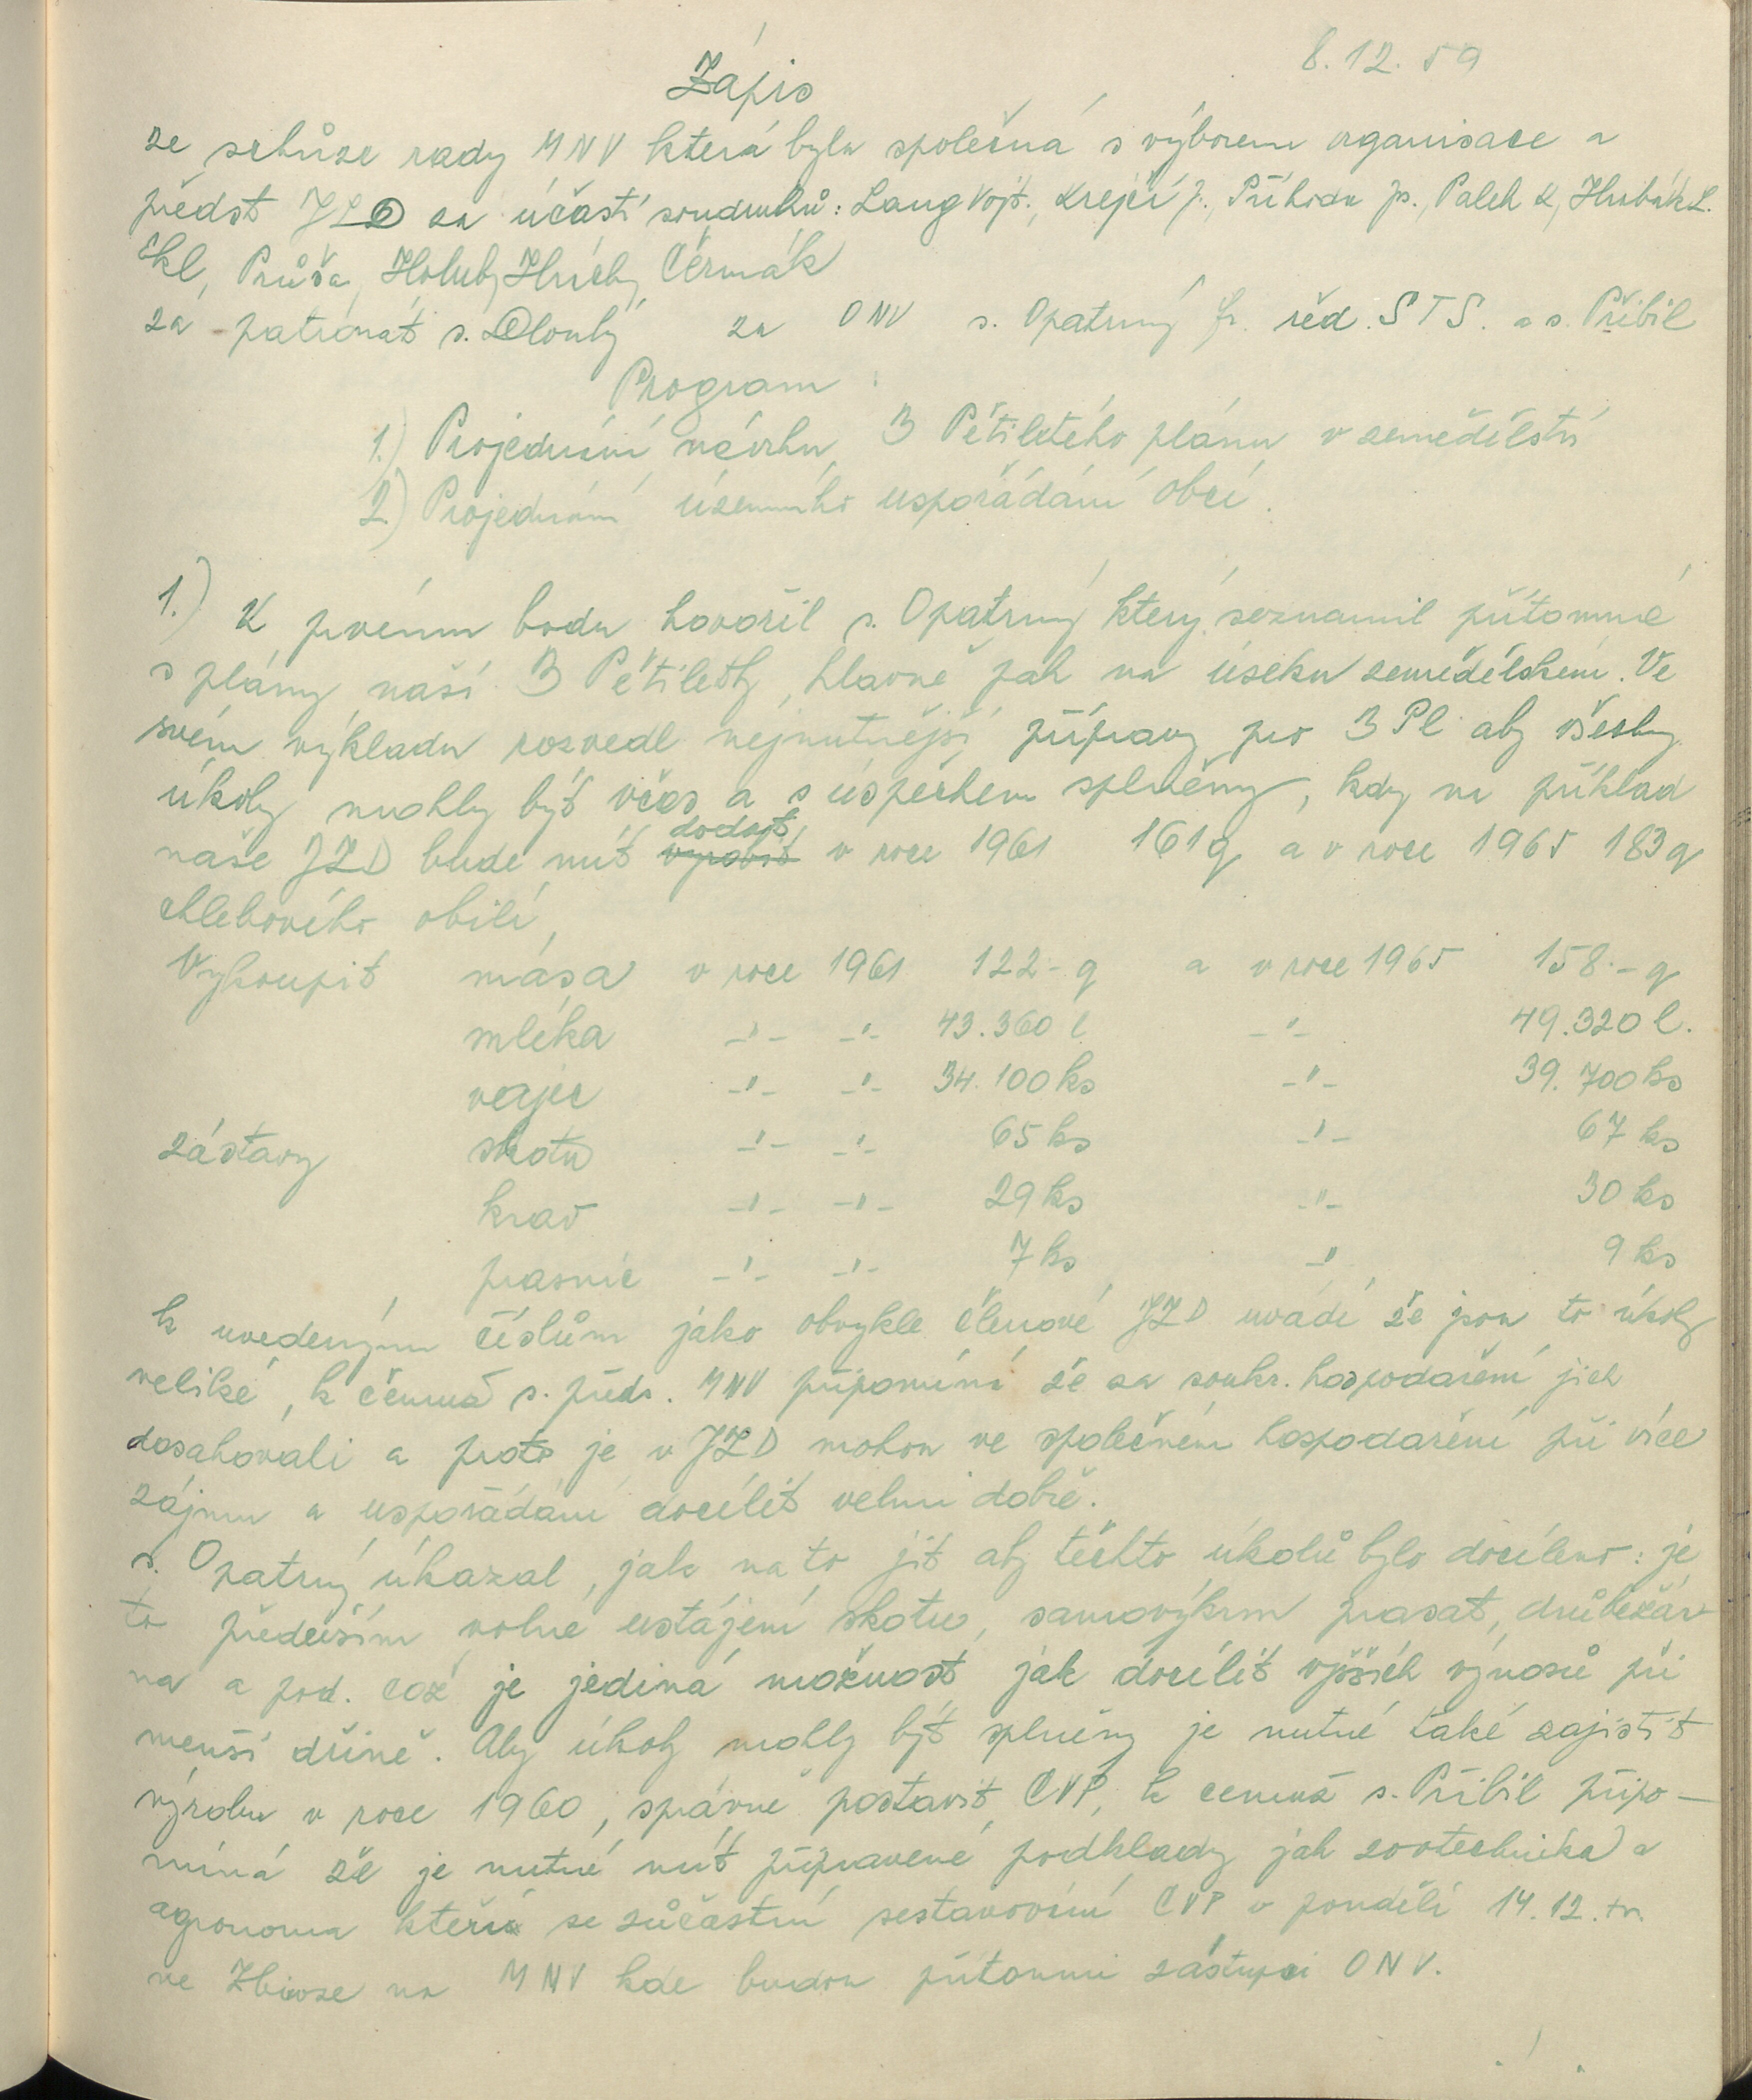 8.12.59
Zápis
ze schůze rady MNV která byla společná s výborem organisace a
předst JZD za účasti soudruhů: Lang Vojt., Krejčí J., Příhoda Js., Paleh K, Hrubák L.
Ekl, Průša, Holub, Hrích, Čermák
za patronát s. Dlouhý za ONV s. Opatrný Jr. řed. STS. a s. Přibil
Program:
1.) Projednání návrhu 3 Pětiletého plánu v zemědělství
2.) Projednání územního uspořádání obcí.
1.) K prvému bodu hovořil s. Opatrný který seznamil přítomné
s plány naší 3 Pětiletky, hlavně pak na úseku zemědělském. Ve
svém výkladu rozvedl nejnutnější přípravy pro 3 Pl aby všechny
úkoly mohly být včas a s úspěchem splněny, kdy na příklad
dodat
naše JZD bude mít vyrobit v roce 1961 161 q a v roce 1965 183 q
chlebového obilí,
Vykoupit masa v roce 1961 122.- q a v roce 1965 158.- q
mléka -"- -"- 43.360 l -"- 49.320 l.
vajec -"- -"- 34.100 ks -"- 39.700 ks
zástavy skotu -"- -"- 65 ks -"- 67 ks
krav -"- -"- 29 ks -"- 30 ks
prasnic -"- -"- 7 ks -" 9 ks
k uvedeným číslům jako obvykle členové JZD uvádí že jsou to úkoly
veliké, k čemuž s. předs. MNV připomíná že za soukr. hospodaření jich
dosahovali a proto je v JZD mohou ve společném hospodaření při více
zájmu a uspořádání docílit velmi dobře.
s. Opatrný úkazal, jak na to jít aby těchto úkolů bylo docíleno: je
to předevšim volné ustájení skotu, samovýkrm prasat, drůbežár-
na a pod. což je jediná možnost jak docílit vyšších výnosů při
menší dřině. Aby úkoly mohly být splněny je nutné také zajistit
výrobu v roce 1960, správně postavit CVP, k cemuž s. Přibil připo-
míná že je nutné mít připravené podklady jak zootechnika a
agronoma kteří se zůčastní sestavování CVP v pondělí 14.12. tr.
ve Zbiroze na MNV kde budou přítomni zástupci ONV.